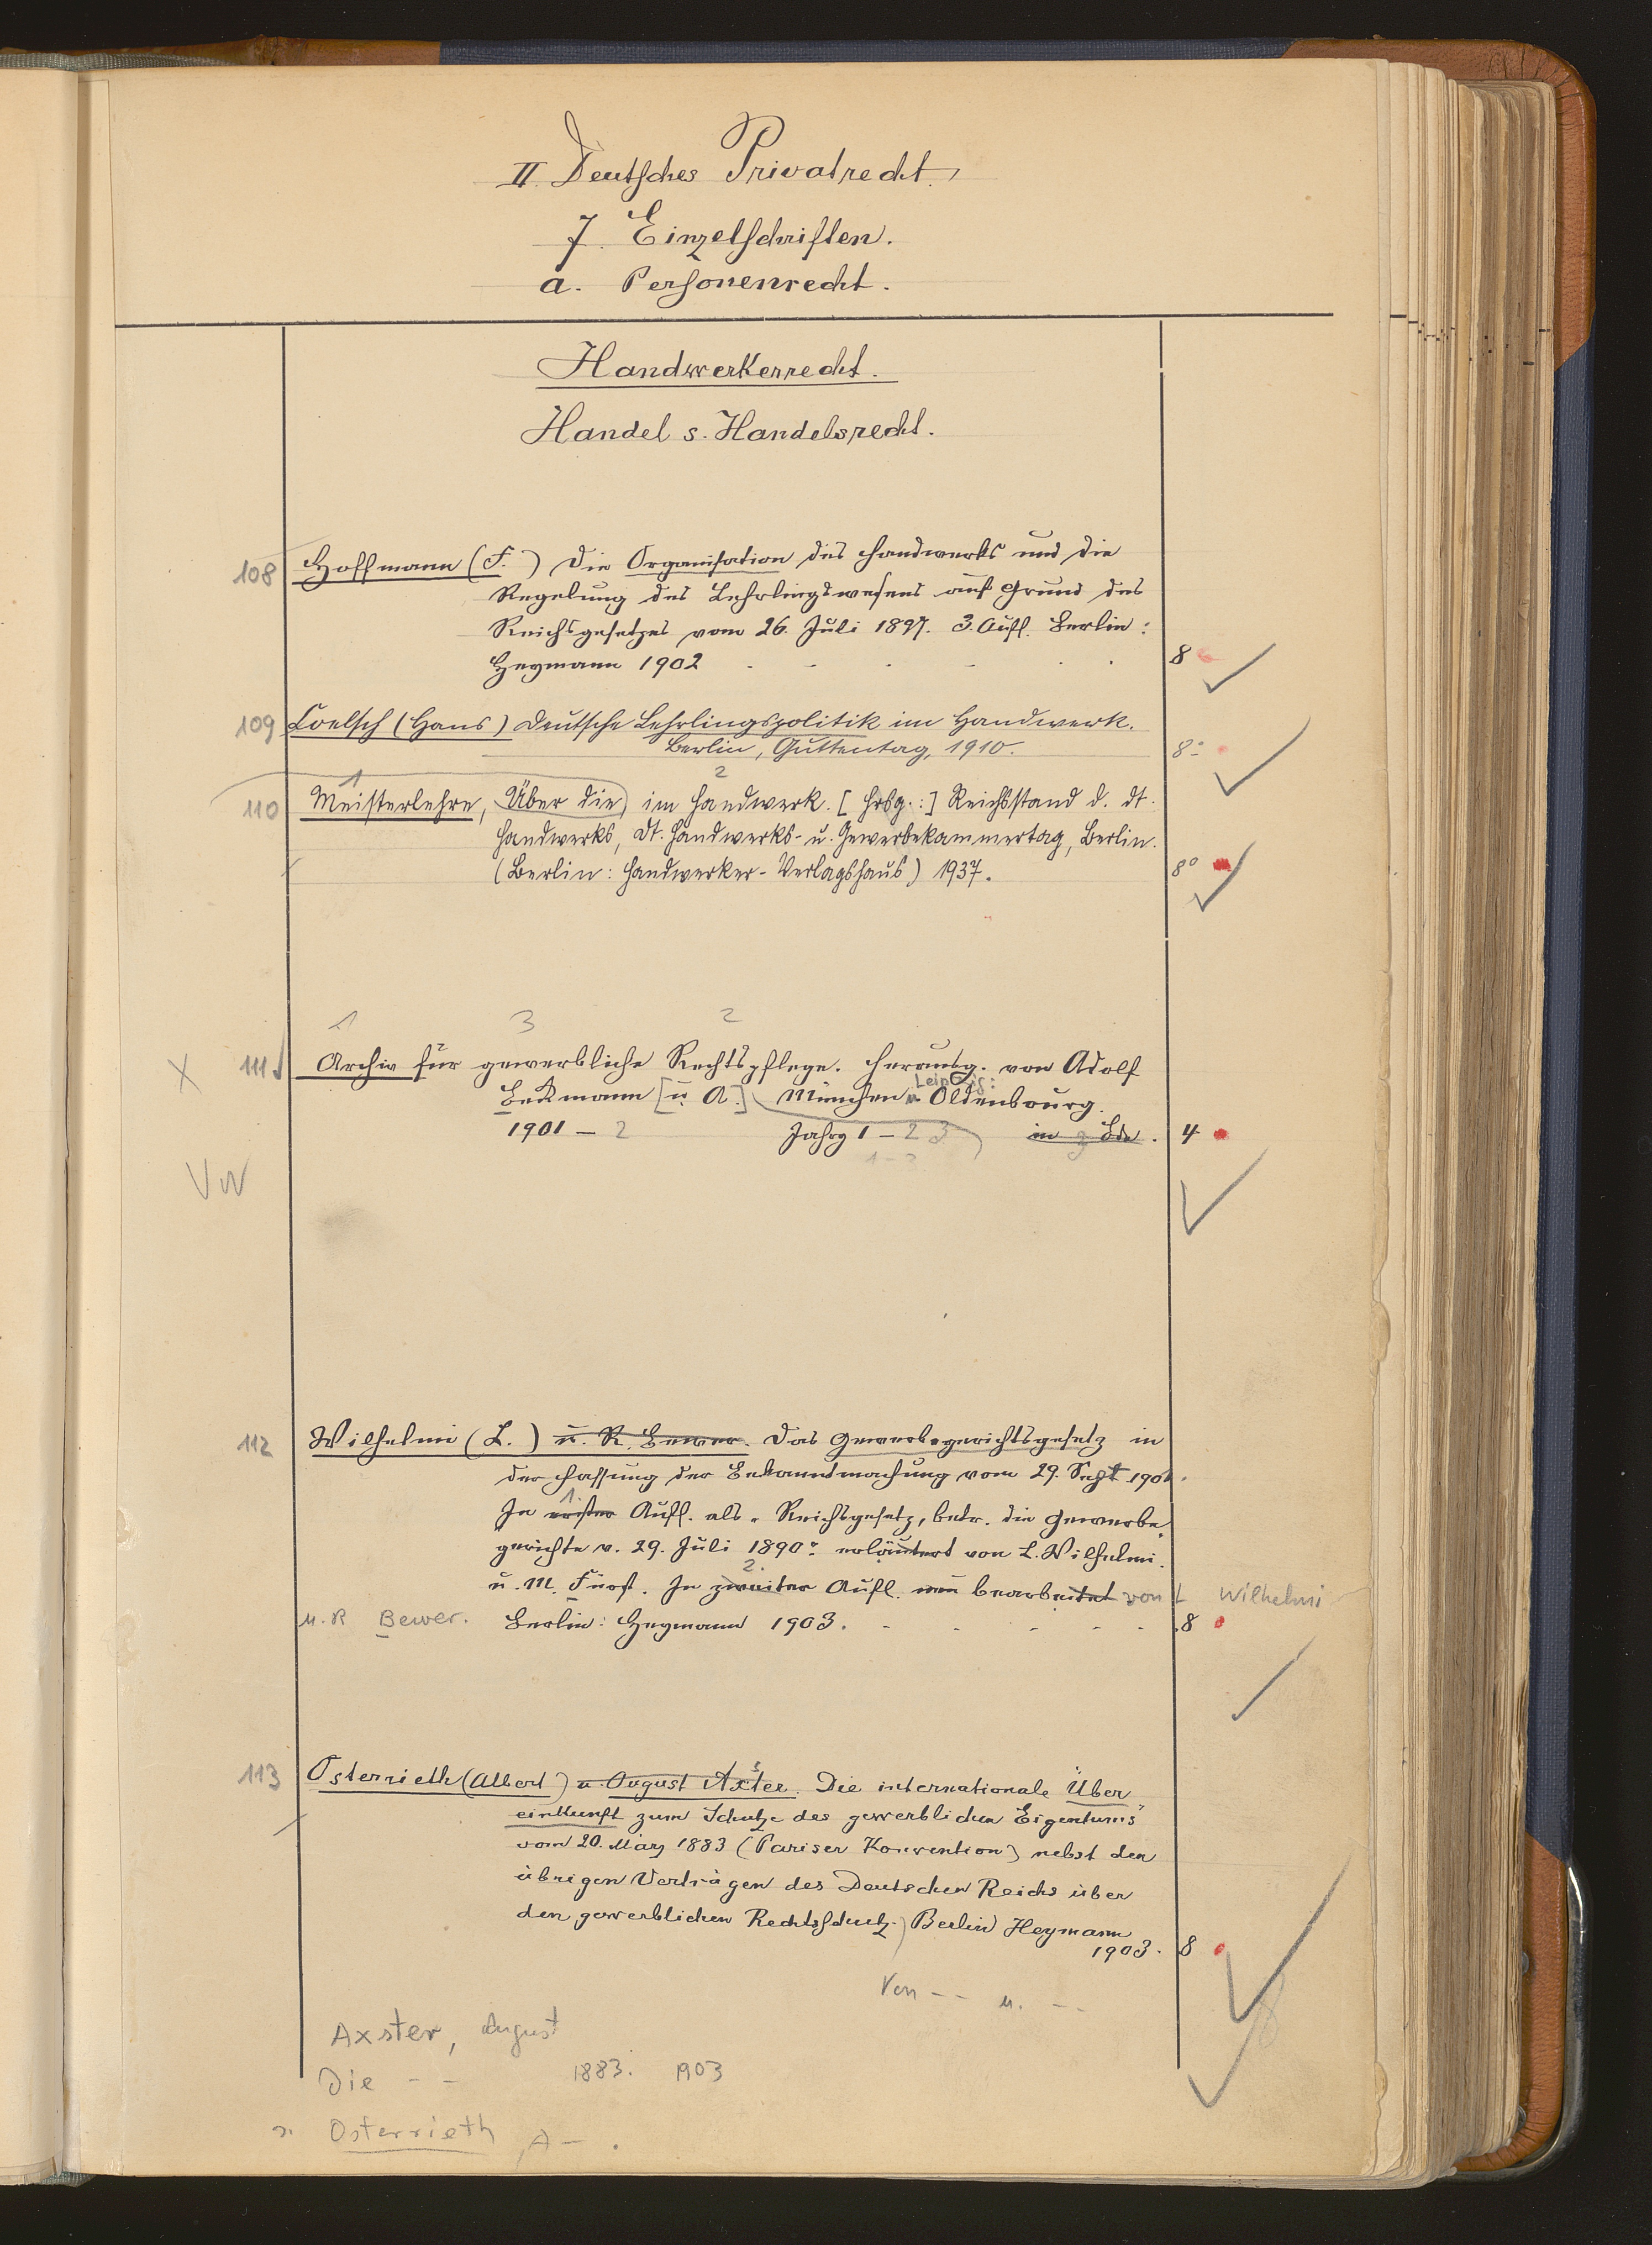 II. Deutsches Privatrecht.
7. Einzelschriften.
a. Personenrecht.
Handwerkerrecht.
Handel s. Handelsrecht.
108 Hoffmann (F.) Die Organisation des Handwerks und die
Regelung des Lehrlingswesens auf Grund des
Reichsgesetzes vom 26. Juli 1897. 3. Aufl. Berlin:
Heymann 1902 8
109 Coelsch (Hans) Deutsche Lehrlingspolitik im Handwerk.
Berlin, Guttentag, 1910. 8°
1 2
110 Meisterlehre, Über die im Handwerk. [Hrsg.:] Reichsstand d. dt.
Handwerks, Dt. Handwerks- u. Gewerbekammertag, Berlin.
(Berlin: Handwerker-Verlagshaus) 1937. 8°
1 3 2
X 111 Archiv für gewerbliche Rechtspflege. Herausg. von Adolf
Leipzig:
Beckmann [u. A.] München u. Oldenbourg.
1901 – 2 Jahrg 1 – 2 3 in 3 Bde. 4
1 – 2
VW
112 Wilhelmi (L.) u. R. Bewer. Das Gewerbegerichtsgesetz in
der Fassung der Bekanntmachung vom 29. Sept. 1901.
1.
In erster Aufl. als „Reichsgesetz, betr. die Gewerbe
gerichte v. 29. Juli 1890" erläutert von L. Wilhelmi.
2.
u. M. Fürst. In zweiter Aufl. neu bearbeitet von L Wilhelmi
u. R Bewer. Berlin: Heymann 1903. 8
113 Osterrieth (Albert) u. August Axster. Die internationale Über
einkunft zum Schutze des gewerblichen Eigentums
vom 20. März 1883 (Pariser Konvention) nebst den
übrigen Verträgen des Deutschen Reichs über
den gewerblichen Rechtsschutz. Berlin Heymann
1903. 8
Von – – u. – –
Axster, August
Die – – 1883. 1903
s. Osterrieth, A – .